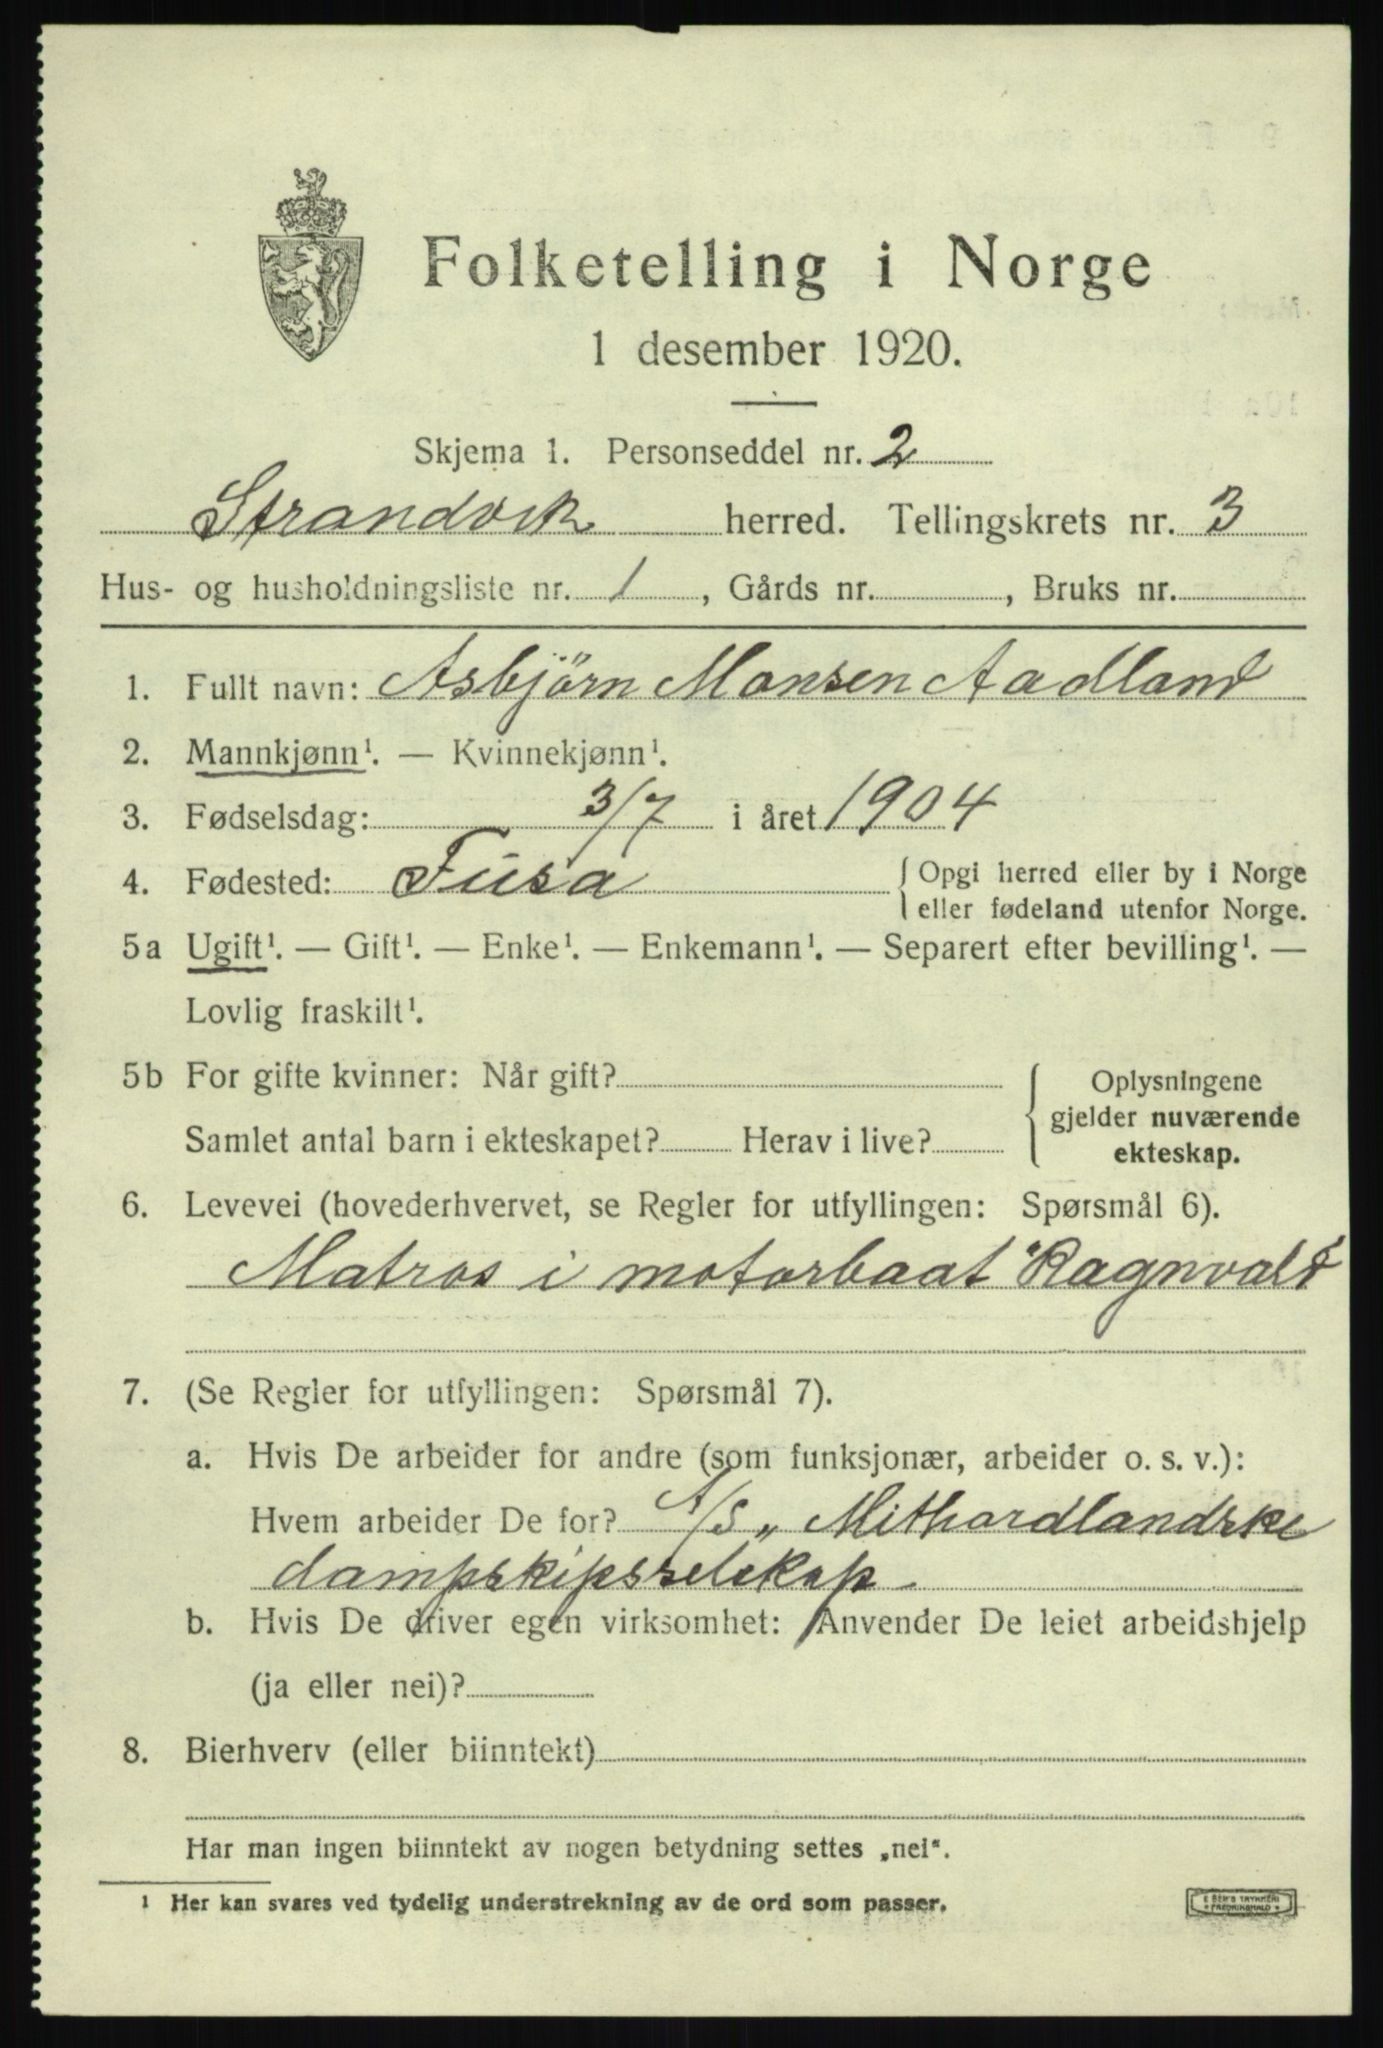 Folketelling i Norge
1 desember 1920.
Skjema 1. Personseddel nr. 2
Strandvik herred. Tellingskrets nr. 3
Hus- og husholdningsliste nr. 1, Gårds nr. , Bruks nr.
1. Fullt navn: Asbjörn Monsen Aadland
2. Mannkjønn¹. — Kvinnekjønn¹.
3. Fødselsdag: 3/7 i året 1904
4. Fødested: Fusa { Opgi herred eller by i Norge
eller fødeland utenfor Norge.
5a Ugift¹. — Gift¹. — Enke¹. — Enkemann¹. — Separert efter bevilling¹. —
Lovlig fraskilt¹.
5b For gifte kvinner: Når gift?
Samlet antal barn i ekteskapet? Herav i live?
Oplysningene
gjelder nuværende
ekteskap.
6. Levevei (hovederhvervet, se Regler for utfyllingen: Spørsmål 6).
Matros i motorbaat "Ragnvald
7. (Se Regler for utfyllingen: Spørsmål 7).
a. Hvis De arbeider for andre (som funksjonær, arbeider o. s. v.):
Hvem arbeider De for? A/S „ Mithordlandske
dampskipsselskap
b. Hvis De driver egen virksomhet: Anvender De leiet arbeidshjelp
(ja eller nei)?
8. Bierhverv (eller biinntekt)
Har man ingen biinntekt av nogen betydning settes „nei“.
¹ Her kan svares ved tydelig understrekning av de ord som passer.